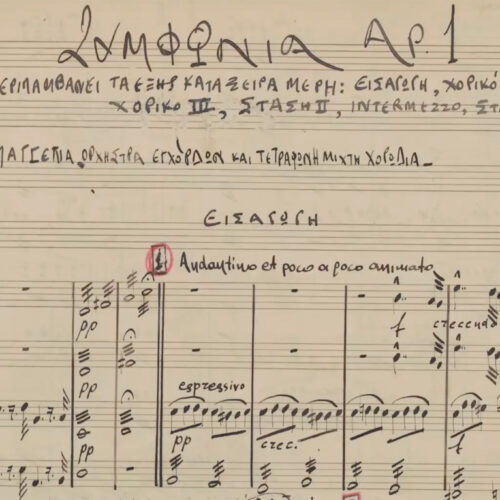 ΣΥΜΦΩΝΙΑ ΑΡ. 1
ΕΡΙΛΑΜΒΑΝΕΙ ΤΑ ΕΞΗΣ ΚΑΤΑ ΣΕΙΡΑ ΜΕΡΗ: ΕΙΣΑΓΩΓΗ, ΧΟΡΙΚΟ
ΧΟΡΙΚΟ III, ΣΤΑΣΗ II, INTERMEZZO, ΣΤ
ΟΡΧΗΣΤΡΑ ΕΓΧΟΡΔΩΝ ΚΑΙ ΤΕΤΡΑΦΩΝΗ ΜΙΧΤΗ ΧΟΡΩΔΙΑ_
ΕΙΣΑΓΩΓΗ
1 Andantino et poco a poco animato
pp f crescendo
pp
espressivo
pp pp cresc. f